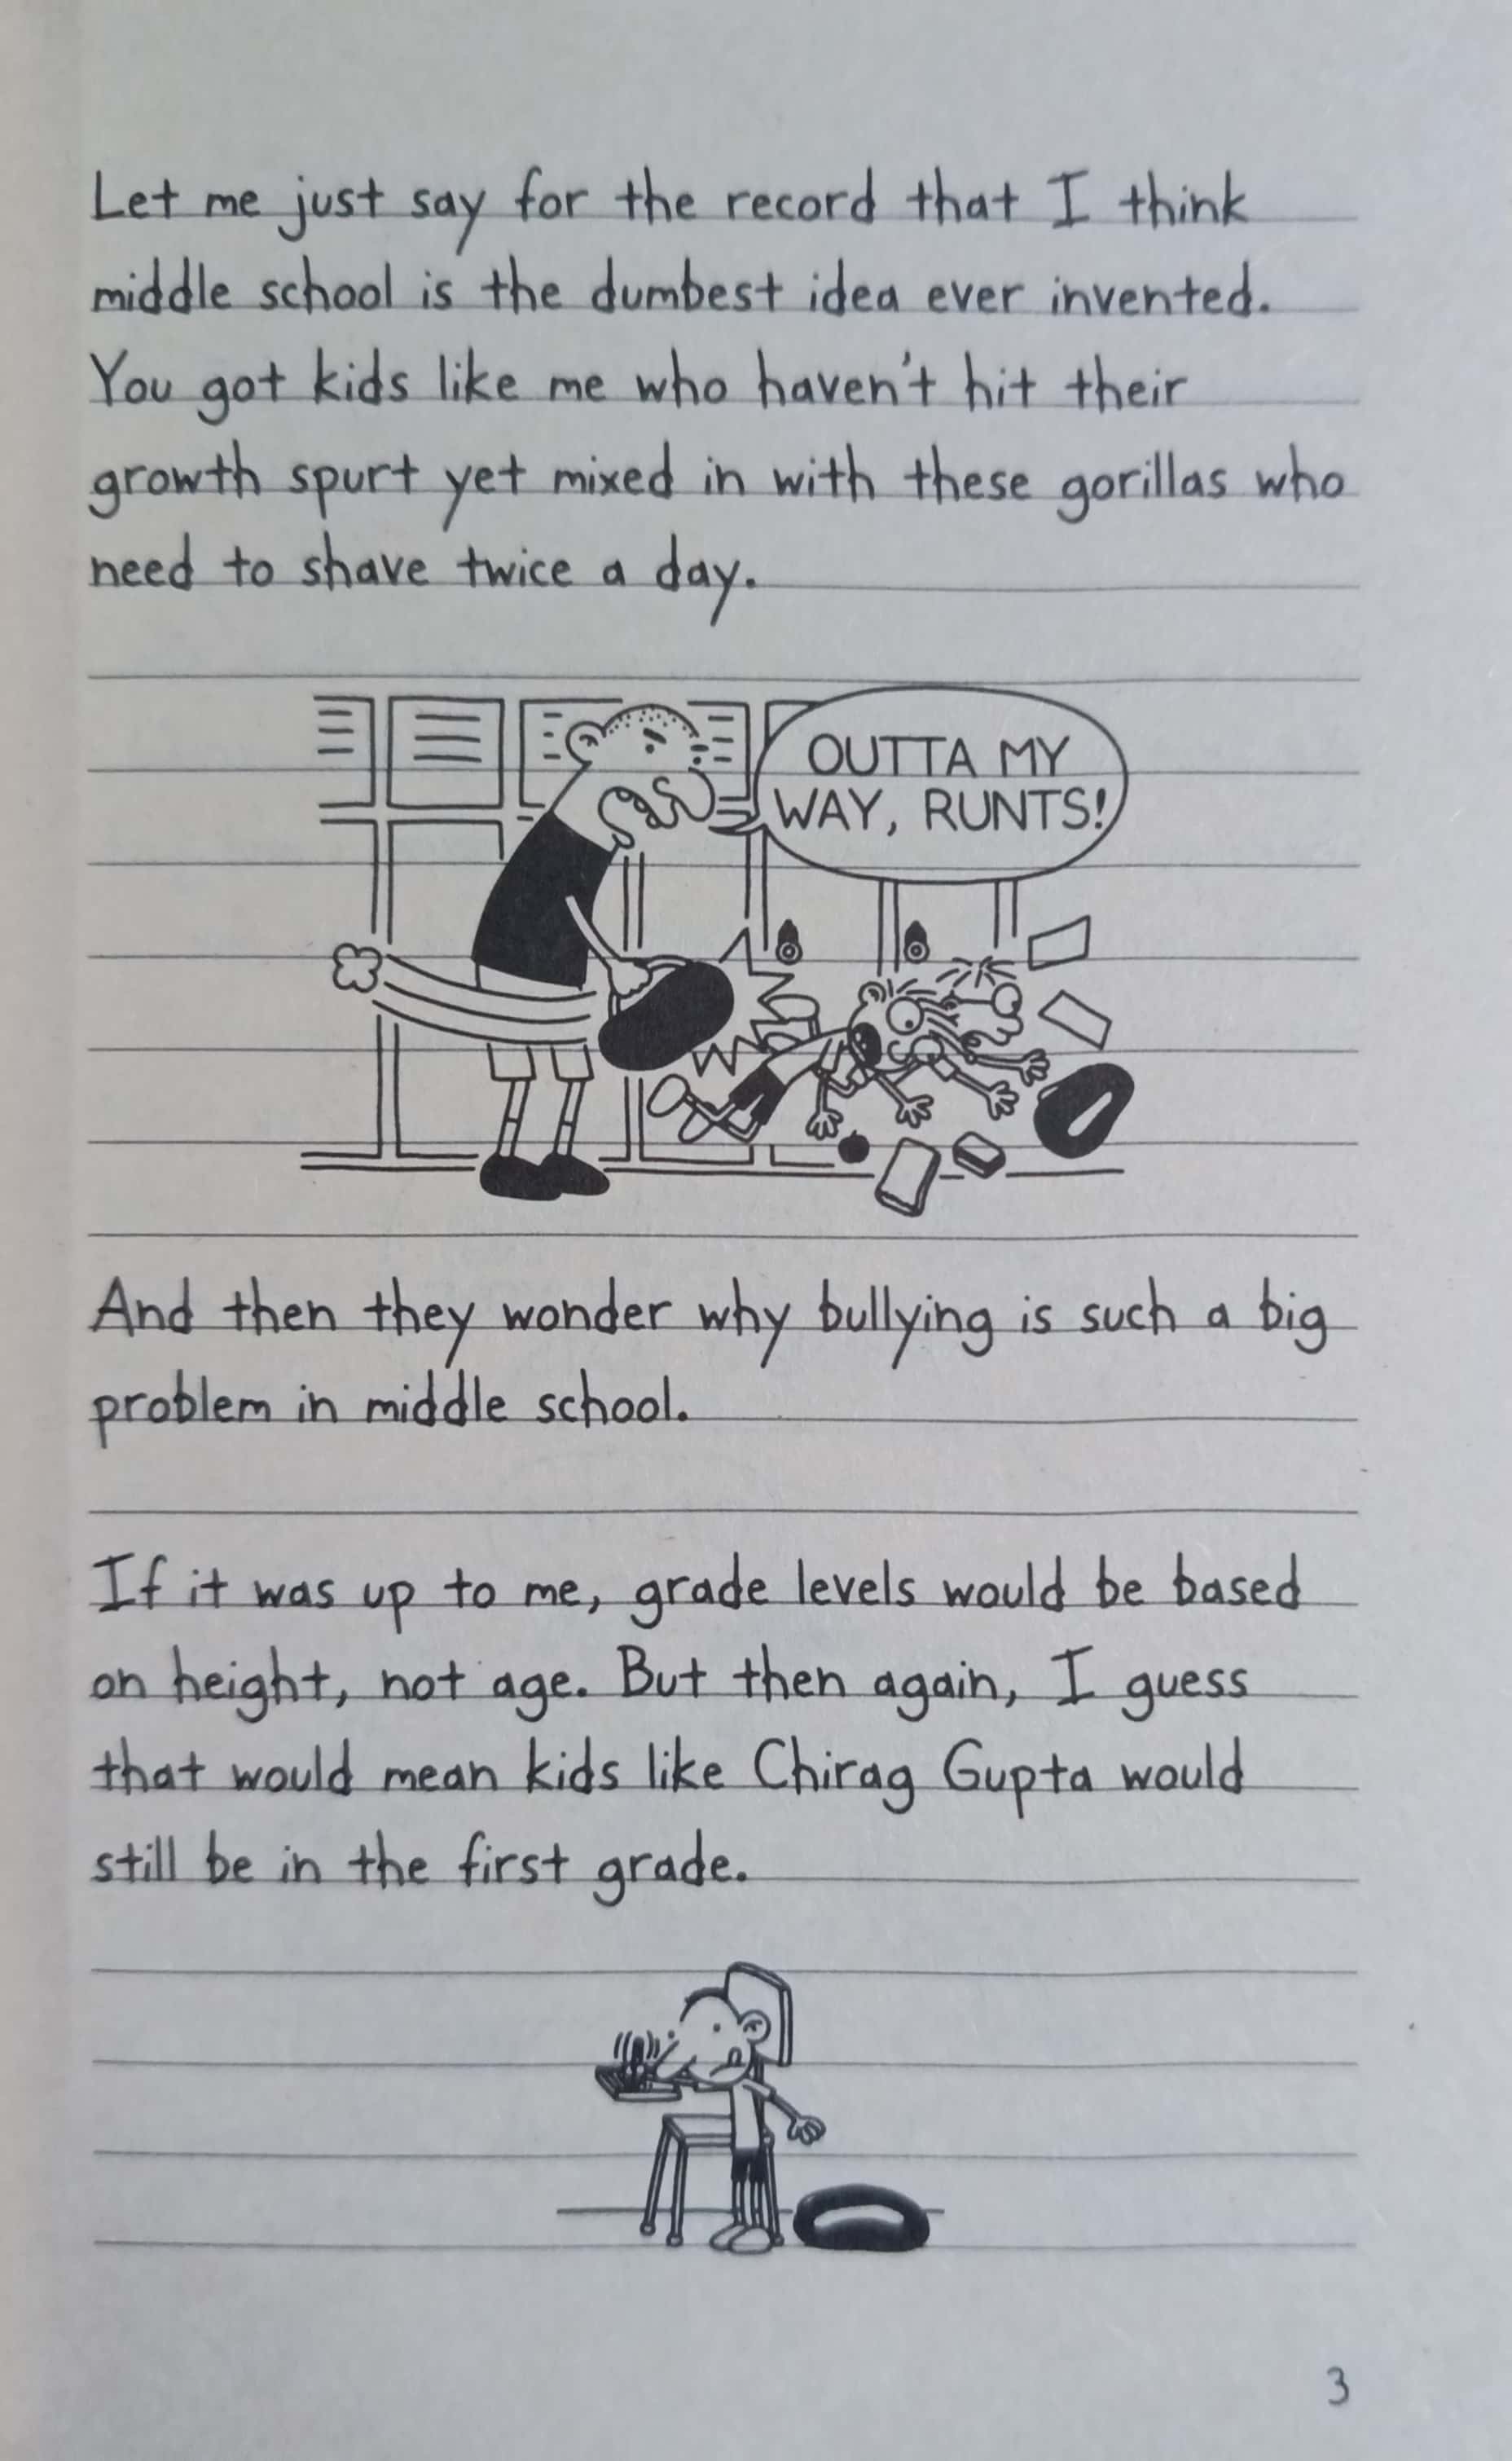 Let me just say for the record that I think
middle school is the dumbest idea ever invented.
You got kids like me who haven't hit their
growth spurt yet mixed in with these gorillas who
need to shave twice a day.
OUTTA MY
WAY, RUNTS!
And then they wonder why bullying is such a big
problem in middle school.
If it was up to me, grade levels would be based
on height, not age. But then again, I guess
that would mean kids like Chirag Gupta would
still be in the first grade.
3